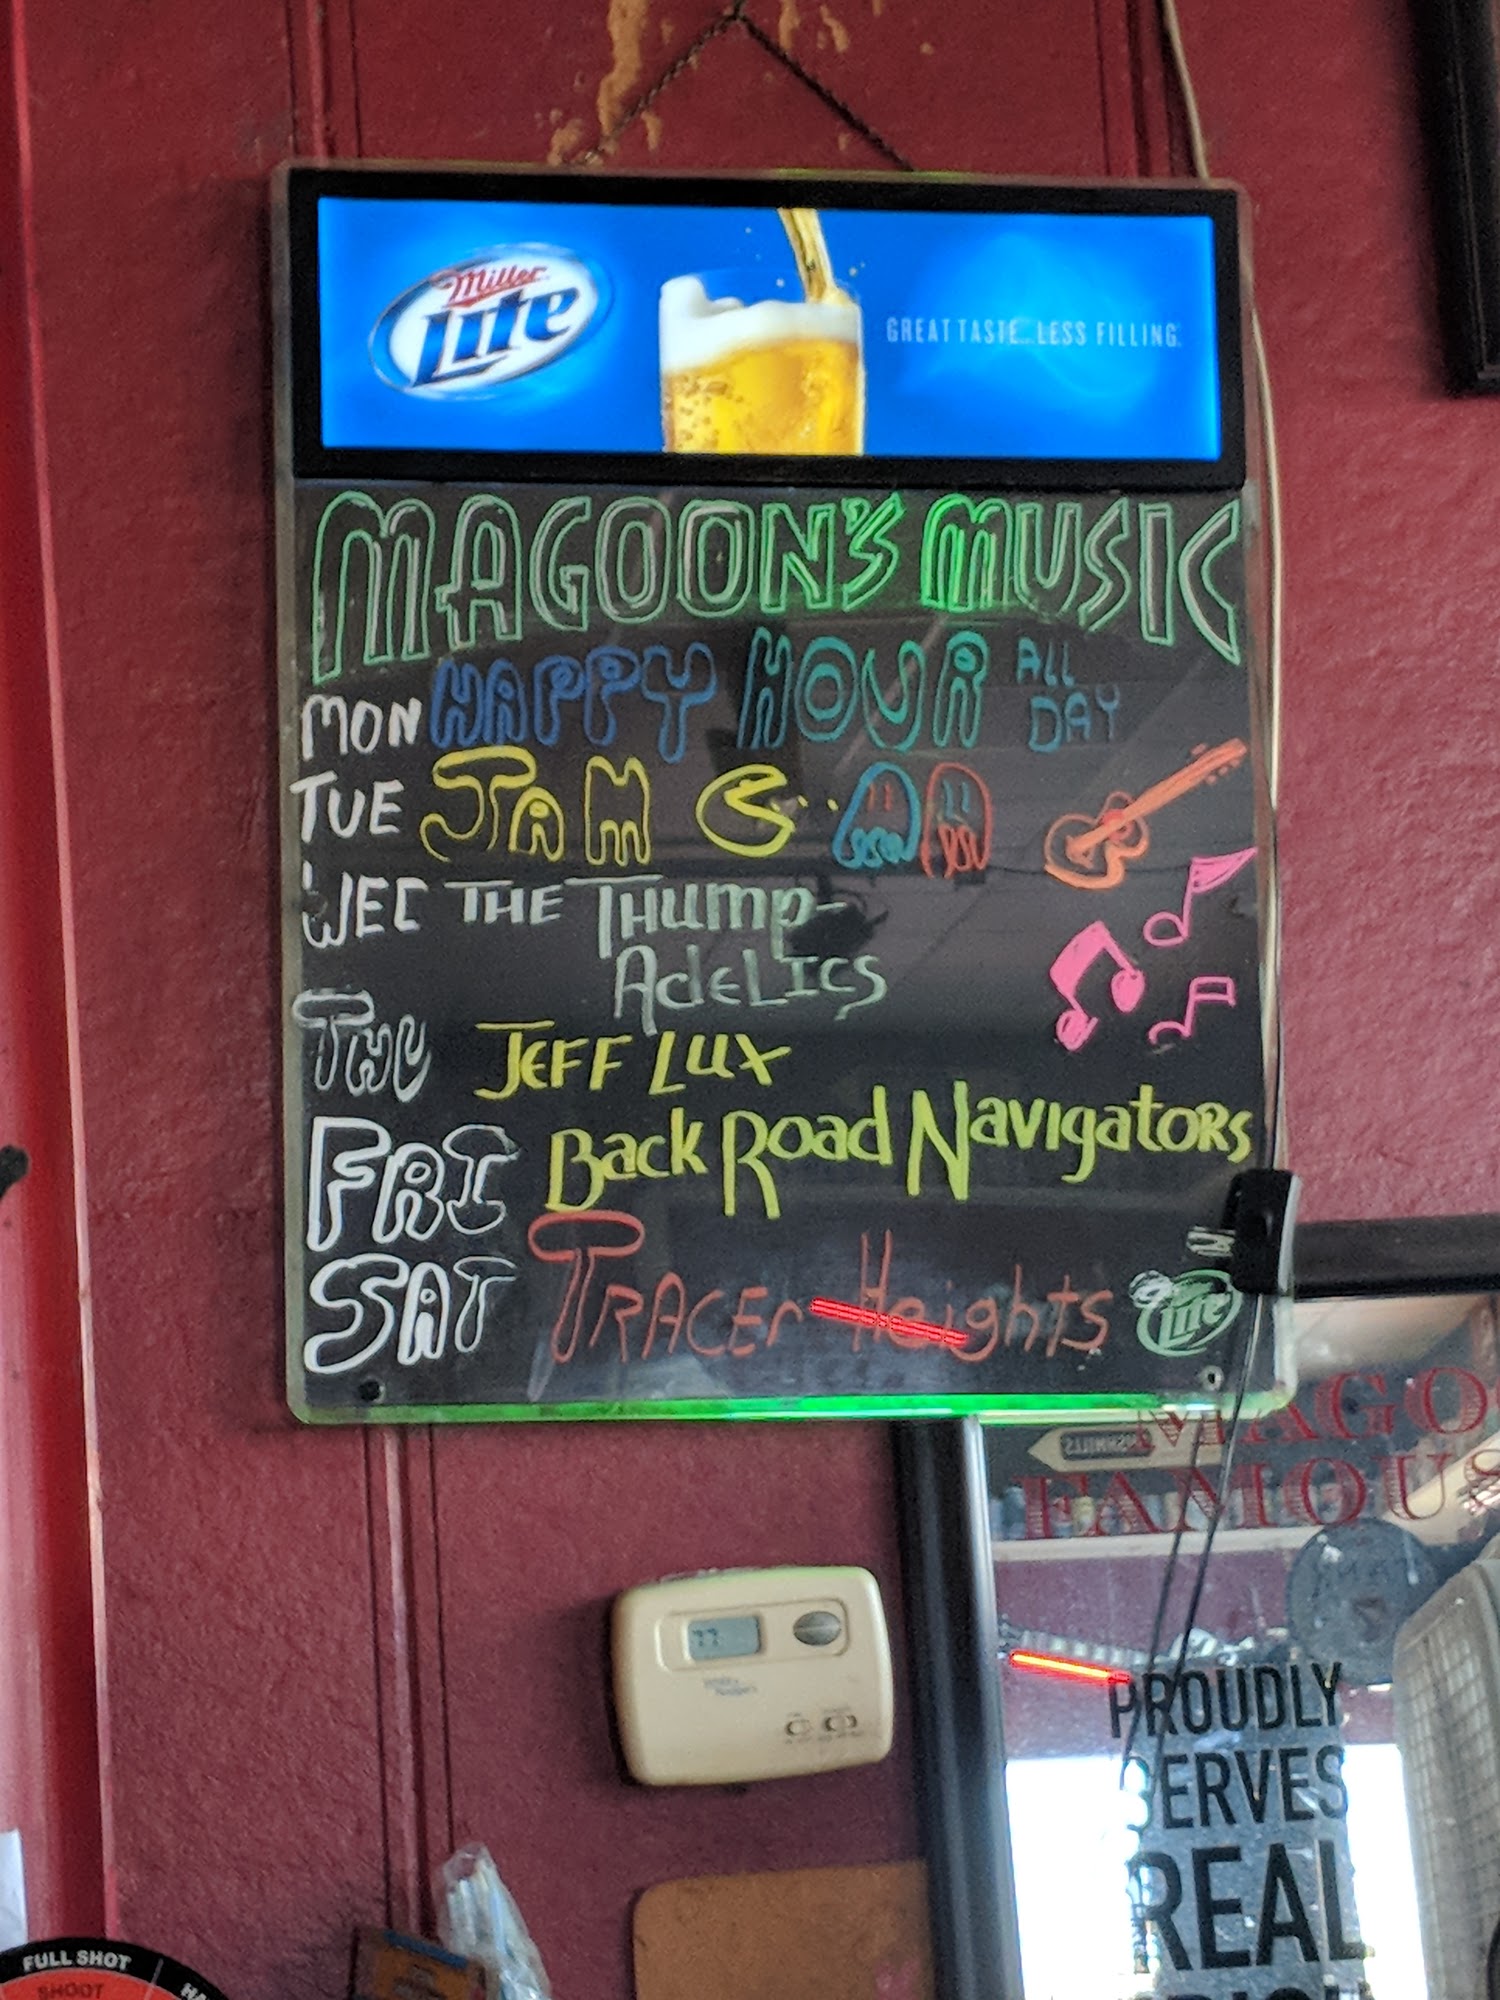 Miller
Lite
GREAT TASTE...LESS FILLING.
MAGOON'S MUSIC
MON HAPPY HOUR ALL DAY
TUE JAM
WED THE THUMP-
ADELICS
THU JEFF LUX
FRI Back Road Navigators
SAT TRACER Heights
Lite
MAGOO
FAMOUS
77
PROUDLY
SERVES
REAL
FULL SHOT
SHOOT
HA